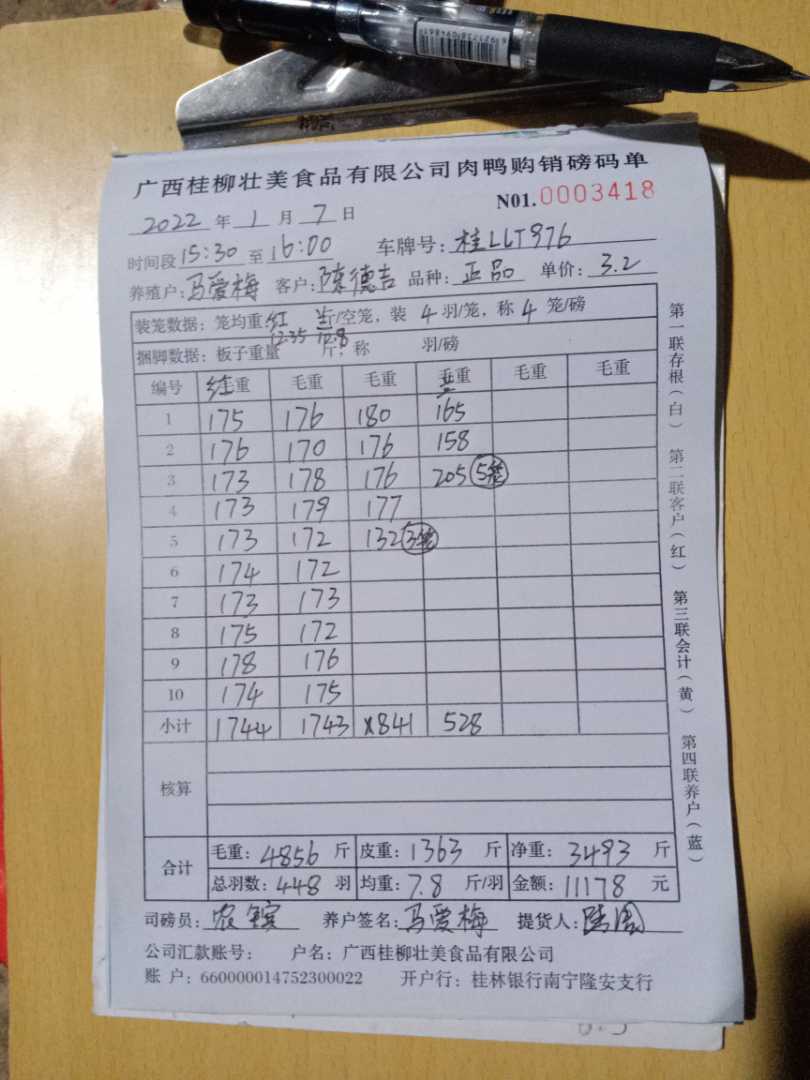 广西桂柳壮美食品有限公司肉鸭购销磅码单
N01.0003418
2022年1月7日
时间段15:30至16:00 车牌号:桂LLT976
养殖户:马爱梅 客户:陈德吉 品种:正品 单价:3.2
装笼数据:笼均重:红 兰斤/空笼,装4羽/笼,称4笼/磅
12.35 12.8
捆脚数据:板子重量 斤,称 羽/磅
编号 红重 毛重 毛重 兰重 毛重 毛重
1 175 176 180 165
2 176 170 176 158
3 173 178 176 205 5笼
4 173 179 177
5 173 172 132 3笼
6 174 172
7 173 173
8 175 172
9 178 176
10 174 175
小计 1744 1743 841 528
核算
合计 毛重:4856斤 皮重:1363斤 净重:3493斤
总羽数:448羽 均重:7.8斤/羽 金额:11178元
司磅员:农 养户签名:马爱梅 提货人:陆
公司汇款账号: 户名:广西桂柳壮美食品有限公司
账 户:660000014752300022 开户行:桂林银行南宁隆安支行
第一联存根(白) 第二联客户(红) 第三联会计(黄) 第四联养户(蓝)